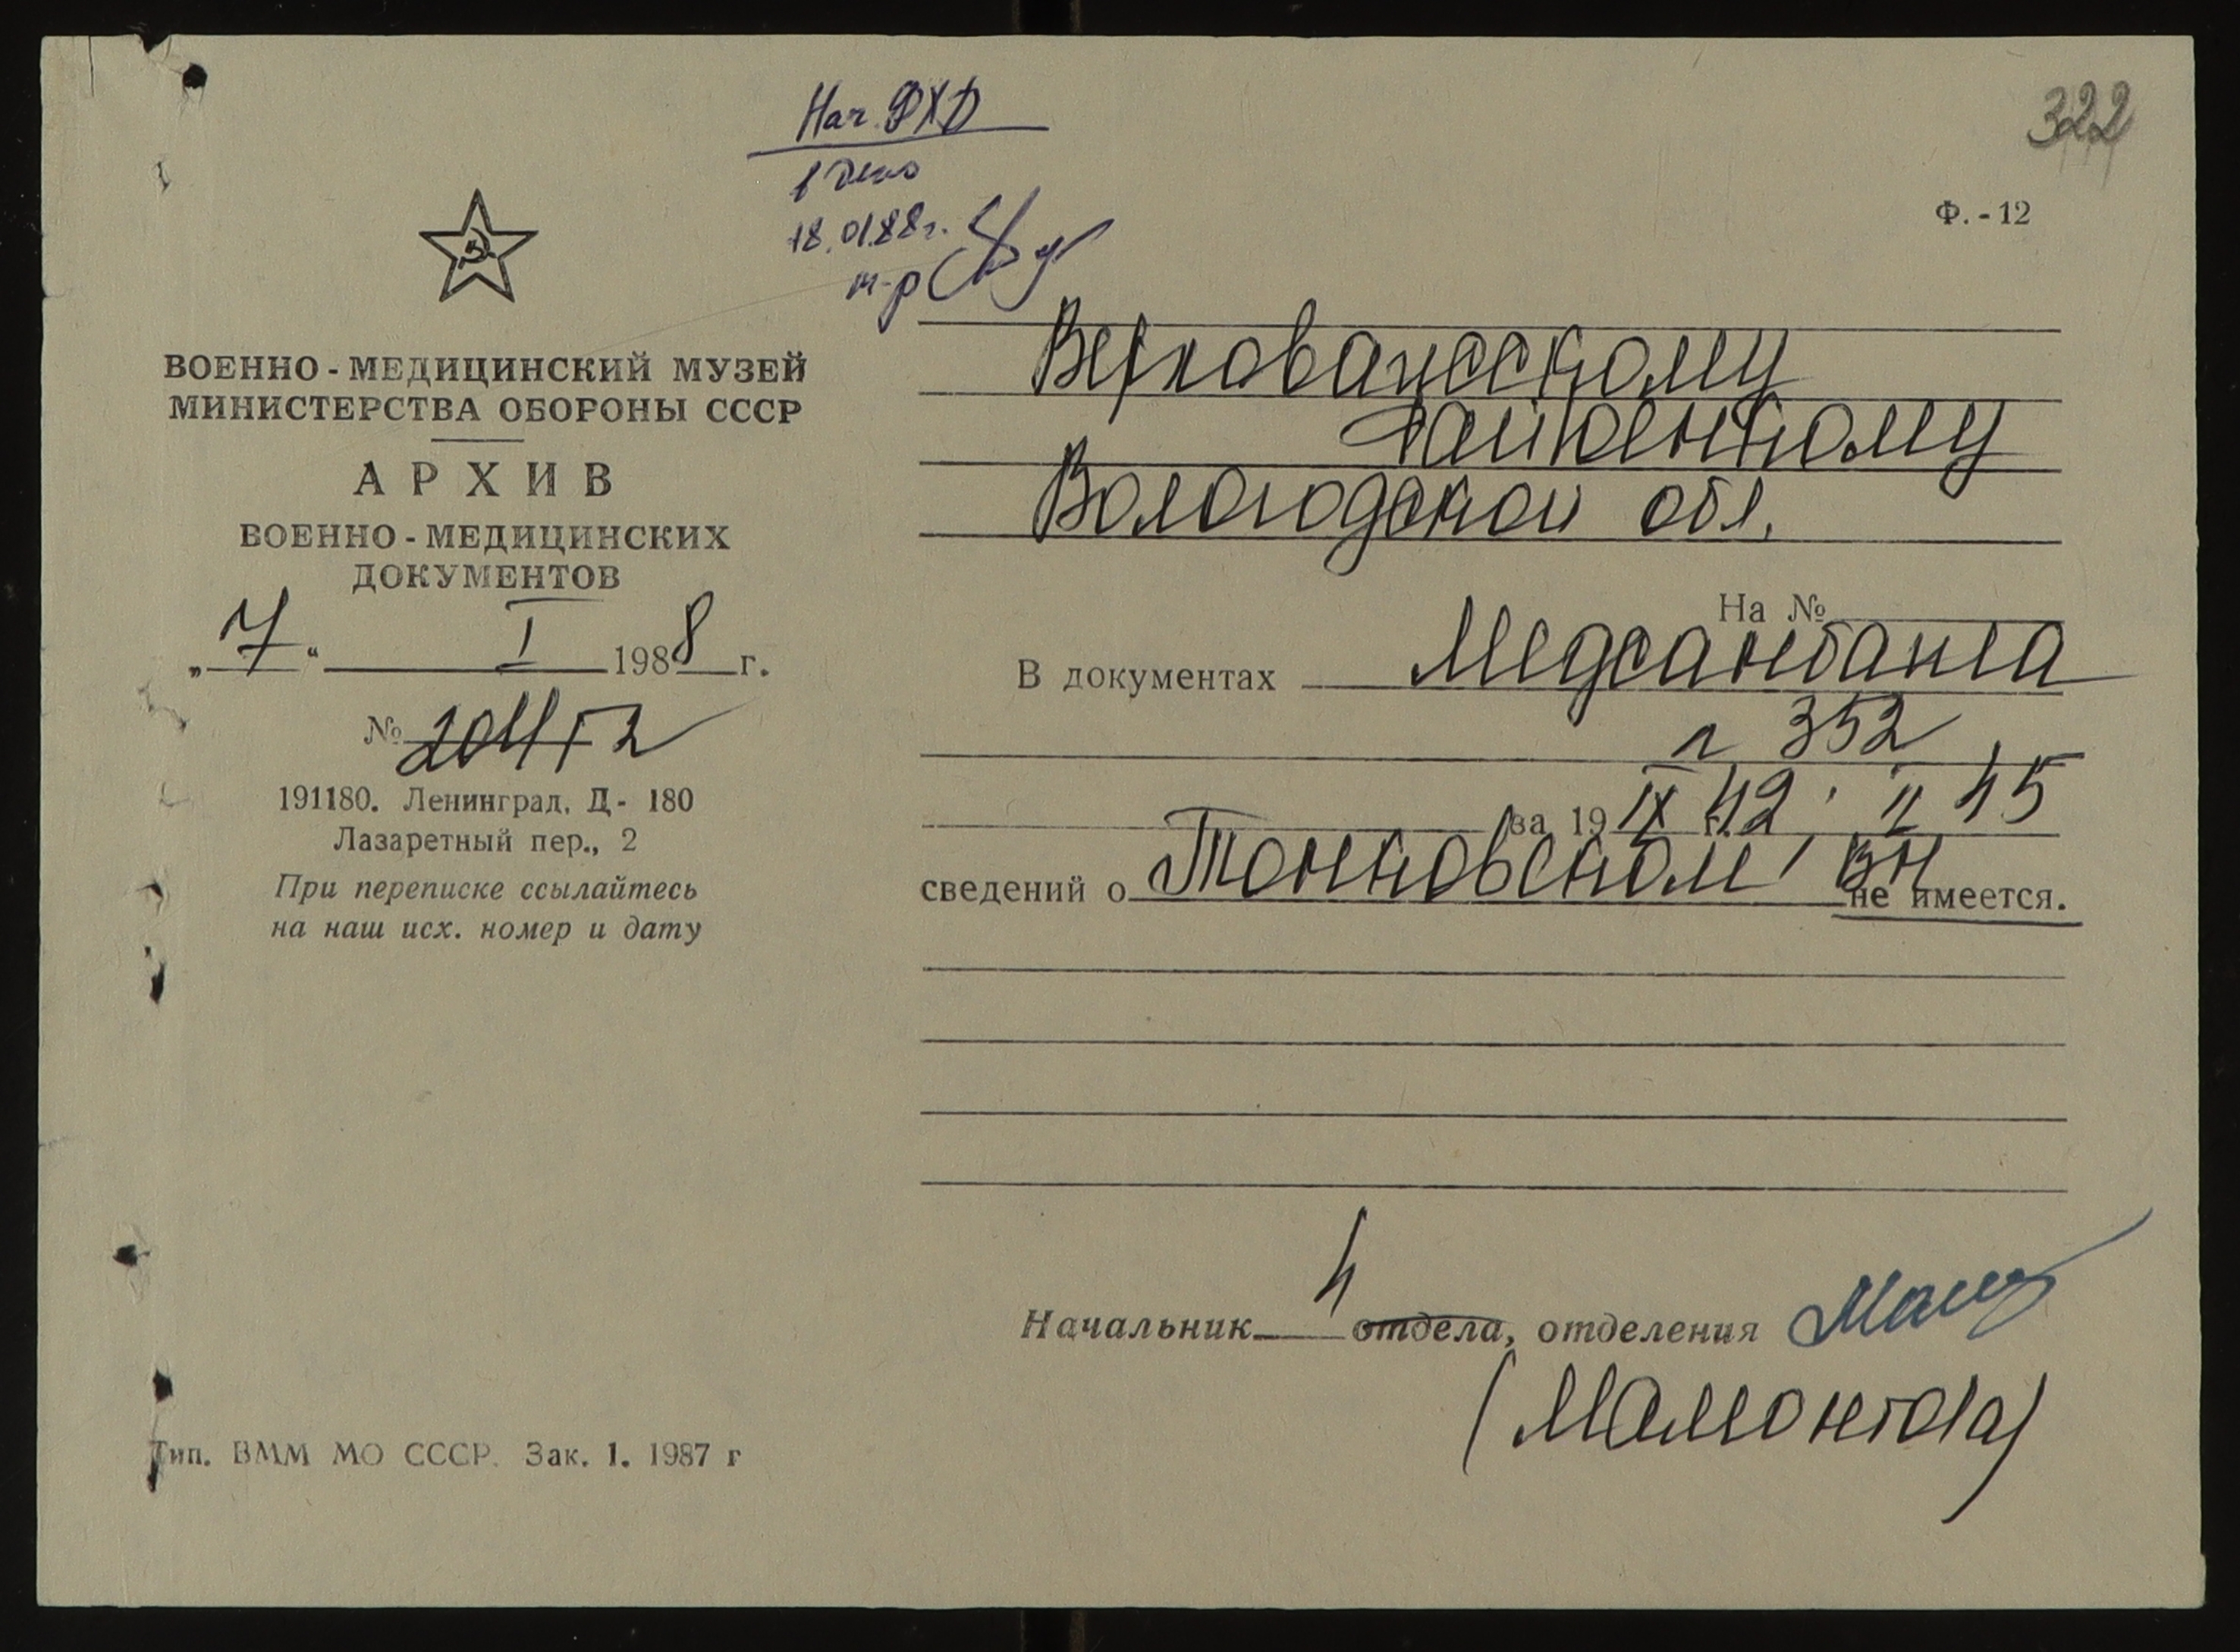 322
Нач. ФХД
в дело
18.01.88г.
м-р
Ф. - 12
ВОЕННО - МЕДИЦИНСКИЙ МУЗЕЙ
МИНИСТЕРСТВА ОБОРОНЫ СССР
АРХИВ
ВОЕННО - МЕДИЦИНСКИХ
ДОКУМЕНТОВ
„7“ I 1988 г.
№
191180. Ленинград, Д - 180
Лазаретный пер., 2
При переписке ссылайтесь
на наш исх. номер и дату
Тип. ВММ МО СССР. Зак. 1. 1987 г
Верховажскому
райвоенкому
Вологодской обл.
На №
В документах Медсанбата
352
за 19 IX 42, II 45 г.
сведений о Тонковском ВН не имеется.
Начальник 4 отдела, отделения
(Мамонтова)